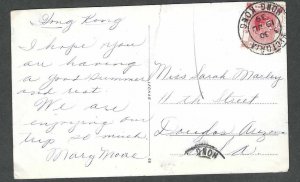 Hong Kong
I hope you
are having
a good summer
and rest.
We are
enjoying our
trip so much.
Mary Moore
Miss Sarah Marley
11 th Street
Douglas Arizona
VICTORIA
HONG-KONG
HONG